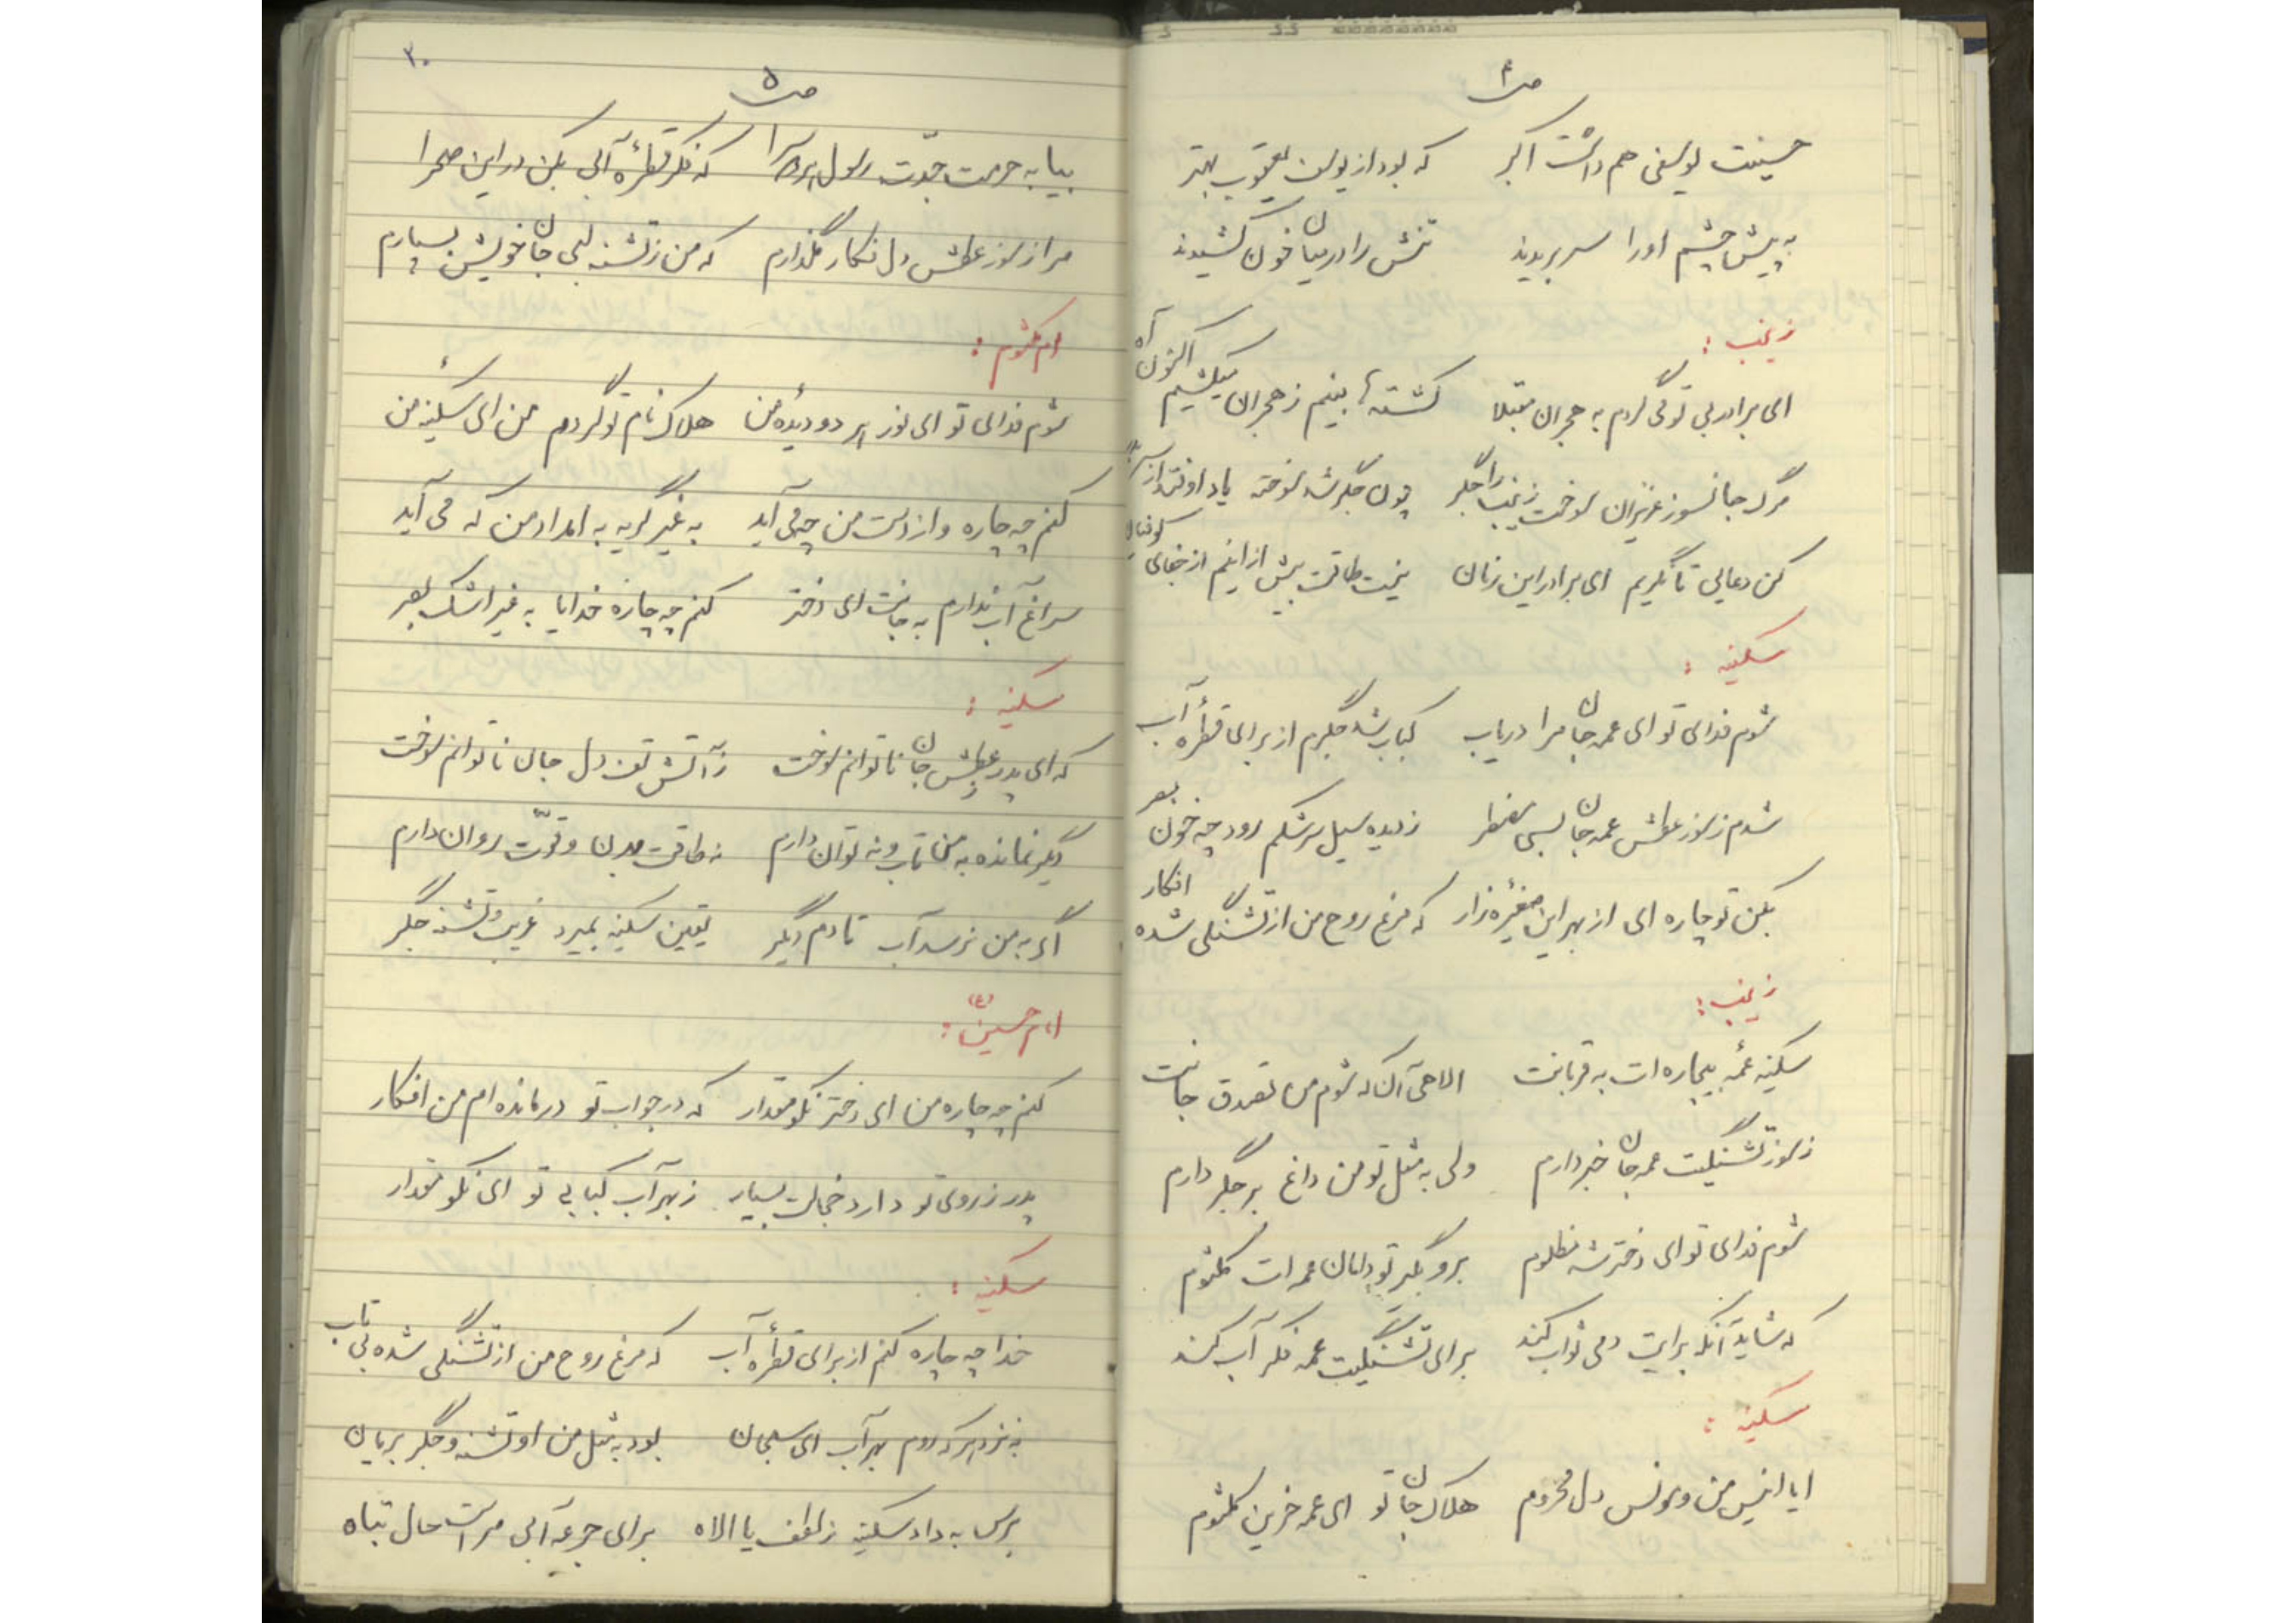 ص۴
حسینت یوسفی هم داشت اکبر که بود از یوسف یعقوب بهتر
به پیش چشم او را سر بریدند تنش را در میان خون کشیدند
زینب :
ای برادر بی تو می گردم به هجران مبتلا کشته ها بینم ز هجران میکشیم اکنون آه
مرگ جانسوز عزیزان سوخت زینب را جگر چون جگر شد سوخته یاد اوفتد از
کن دعایی تا نگریم ای برادر این زمان نیست طاقت بیش از اینم از جفای کوفیان
سکینه :
شوم فدای تو ای عمه جان مرا دریاب کباب شد جگرم از برای قطرهٔ آب
شدم ز سوز عطش عمه جان بسی مضطر ز دیده سیل سرشکم رود چه خون
بکن تو چاره ای از بهر این صغیرهٔ زار که مرغ روح من از تشنگی شده افکار
زینب :
سکینه عمهٔ بیچاره ات به قربانت الاهی آن که شوم من تصدق جانت
ز سوز تشنگیت عمه جان خبر دارم ولی به مثل تو من داغ بر جگر دارم
شوم فدای تو ای دختر شه مظلوم برو بگیر تو دامان عمه ات کلثوم
که شاید آنکه برایت دمی ثواب کند برای تشنگیت عمه فکر آب کند
سکینه :
ایا انیس من و مونس دل محروم هلاک جان تو ای عمه حزین کلثوم
۲۰
ص۵
بیا به حرمت جدّت رسول هر دو سرا که فکر قطرهٔ آبی بکن در این صحرا
مرا ز سوز عطش دل فکار مگذارم که من ز تشنه لبی جان خویش بسپارم
ام کلثوم :
شوم فدای تو ای نور هر دو دیدهٔ من هلاک نام تو گردم من ای سکینهٔ من
کنم چه چاره و از دست من چه می آید به غیر گریه به امداد من که می آید
سراغ آب ندارم به جانت ای دختر کنم چه چاره خدایا به غیر اشک بصر
سکینه :
که ای پدر ز عطش جان ناتوانم سوخت ز آتش تف دل جان ناتوانم سوخت
دگر نمانده به من تاب و نه توان دارم نه طاقت بدن و قوّت روان دارم
اگر به من نرسد آب تا دم دیگر یقین سکینه بمیرد غریب و تشنه جگر
امام حسین (ع) :
کنم چه چاره من ای دختر نکو مقدار که در جواب تو درمانده ام من افکار
پدر ز روی تو دارد خجالت بسیار ز بهر آب کبابی تو ای نکو مقدار
سکینه :
خدا چه چاره کنم از برای قطرهٔ آب که مرغ روح من از تشنگی شده بی تاب
به نزد هر که روم بهر آب ای سبحان بود به مثل من او تشنه و جگر بریان
برس به داد سکینه ز لطف یا الاه برای جرعه آبی مراست حال تباه